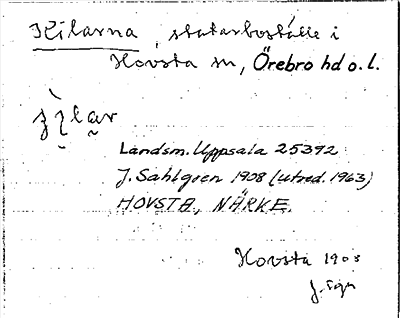 Kilarna, statarboställe i
Hovsta sn, Örebro hd o. l.
Landsm. Uppsala 25392
J. Sahlgren 1908 (utred. 1963)
HOVSTA, NÄRKE.
Hovsta 1908
J. Sgn